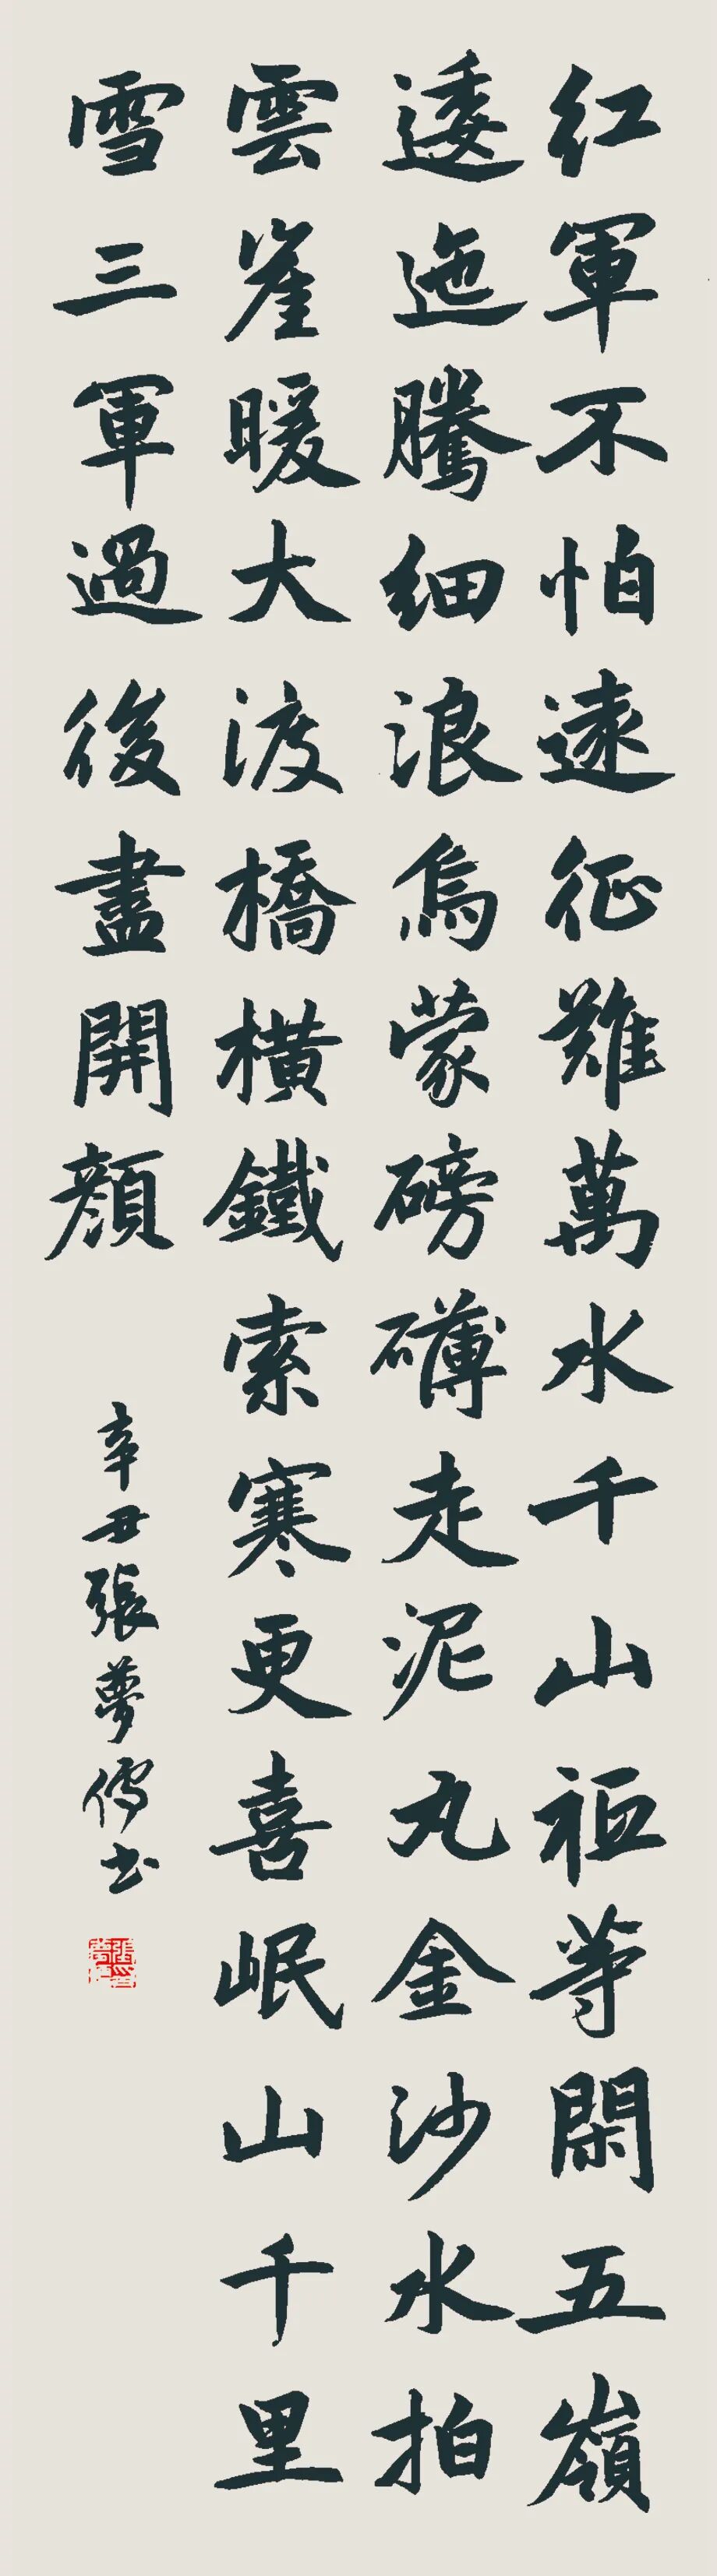 紅軍不怕遠征難萬水千山祗等閑五嶺
逶迤騰細浪烏蒙磅礴走泥丸金沙水拍
雲崖暖大渡橋横鐵索寒更喜岷山千里
雪三軍過後盡開顔
辛丑張夢儒书